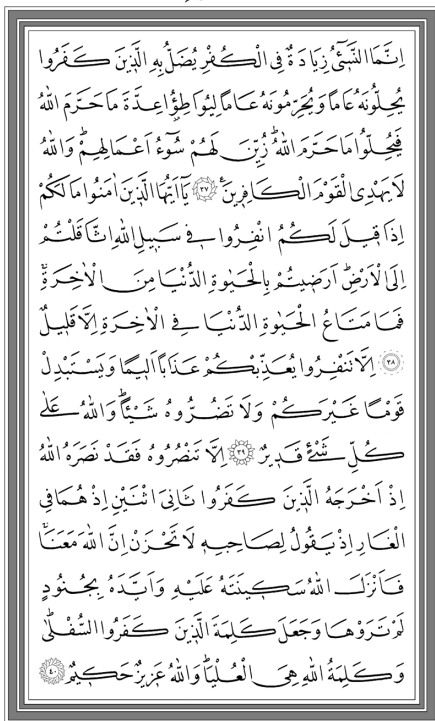 اِنَّمَا النَّسٖٓيءُ زِيَادَةٌ فِي الْكُفْرِ يُضَلُّ بِهِ الَّذٖينَ كَفَرُوا
يُحِلُّونَهُ عَاماً وَيُحَرِّمُونَهُ عَاماً لِيُوَاطِؤُ۫ا عِدَّةَ مَا حَرَّمَ اللّٰهُ
فَيُحِلُّوا مَا حَرَّمَ اللّٰهُؕ زُيِّنَ لَهُمْ سُٓوءُ اَعْمَالِهِمْؕ وَاللّٰهُ
لَا يَهْدِي الْقَوْمَ الْكَافِرٖينَࣖ ﴿٣٧﴾ يَٓا اَيُّهَا الَّذٖينَ اٰمَنُوا مَا لَكُمْ
اِذَا قٖيلَ لَكُمُ انْفِرُوا فٖي سَبٖيلِ اللّٰهِ اثَّاقَلْتُمْ
اِلَى الْاَرْضِؕ اَرَضٖيتُمْ بِالْحَيٰوةِ الدُّنْيَا مِنَ الْاٰخِرَةِۚ
فَمَا مَتَاعُ الْحَيٰوةِ الدُّنْيَا فِي الْاٰخِرَةِ اِلَّا قَلٖيلٌ
﴿٣٨﴾ اِلَّا تَنْفِرُوا يُعَذِّبْكُمْ عَذَاباً اَلٖيماً وَيَسْتَبْدِلْ
قَوْماً غَيْرَكُمْ وَلَا تَضُرُّوهُ شَيْـٔاًؕ وَاللّٰهُ عَلٰى
كُلِّ شَيْءٍ قَدٖيرٌ ﴿٣٩﴾ اِلَّا تَنْصُرُوهُ فَقَدْ نَصَرَهُ اللّٰهُ
اِذْ اَخْرَجَهُ الَّذٖينَ كَفَرُوا ثَانِيَ اثْنَيْنِ اِذْ هُمَا فِي
الْغَارِ اِذْ يَقُولُ لِصَاحِبِهٖ لَا تَحْزَنْ اِنَّ اللّٰهَ مَعَنَاۚ
فَاَنْزَلَ اللّٰهُ سَكٖينَتَهُ عَلَيْهِ وَاَيَّدَهُ بِجُنُودٍ
لَمْ تَرَوْهَا وَجَعَلَ كَلِمَةَ الَّذٖينَ كَفَرُوا السُّفْلٰىؕ
وَكَلِمَةُ اللّٰهِ هِيَ الْعُلْيَاؕ وَاللّٰهُ عَزٖيزٌ حَكٖيمٌ ﴿٤٠﴾